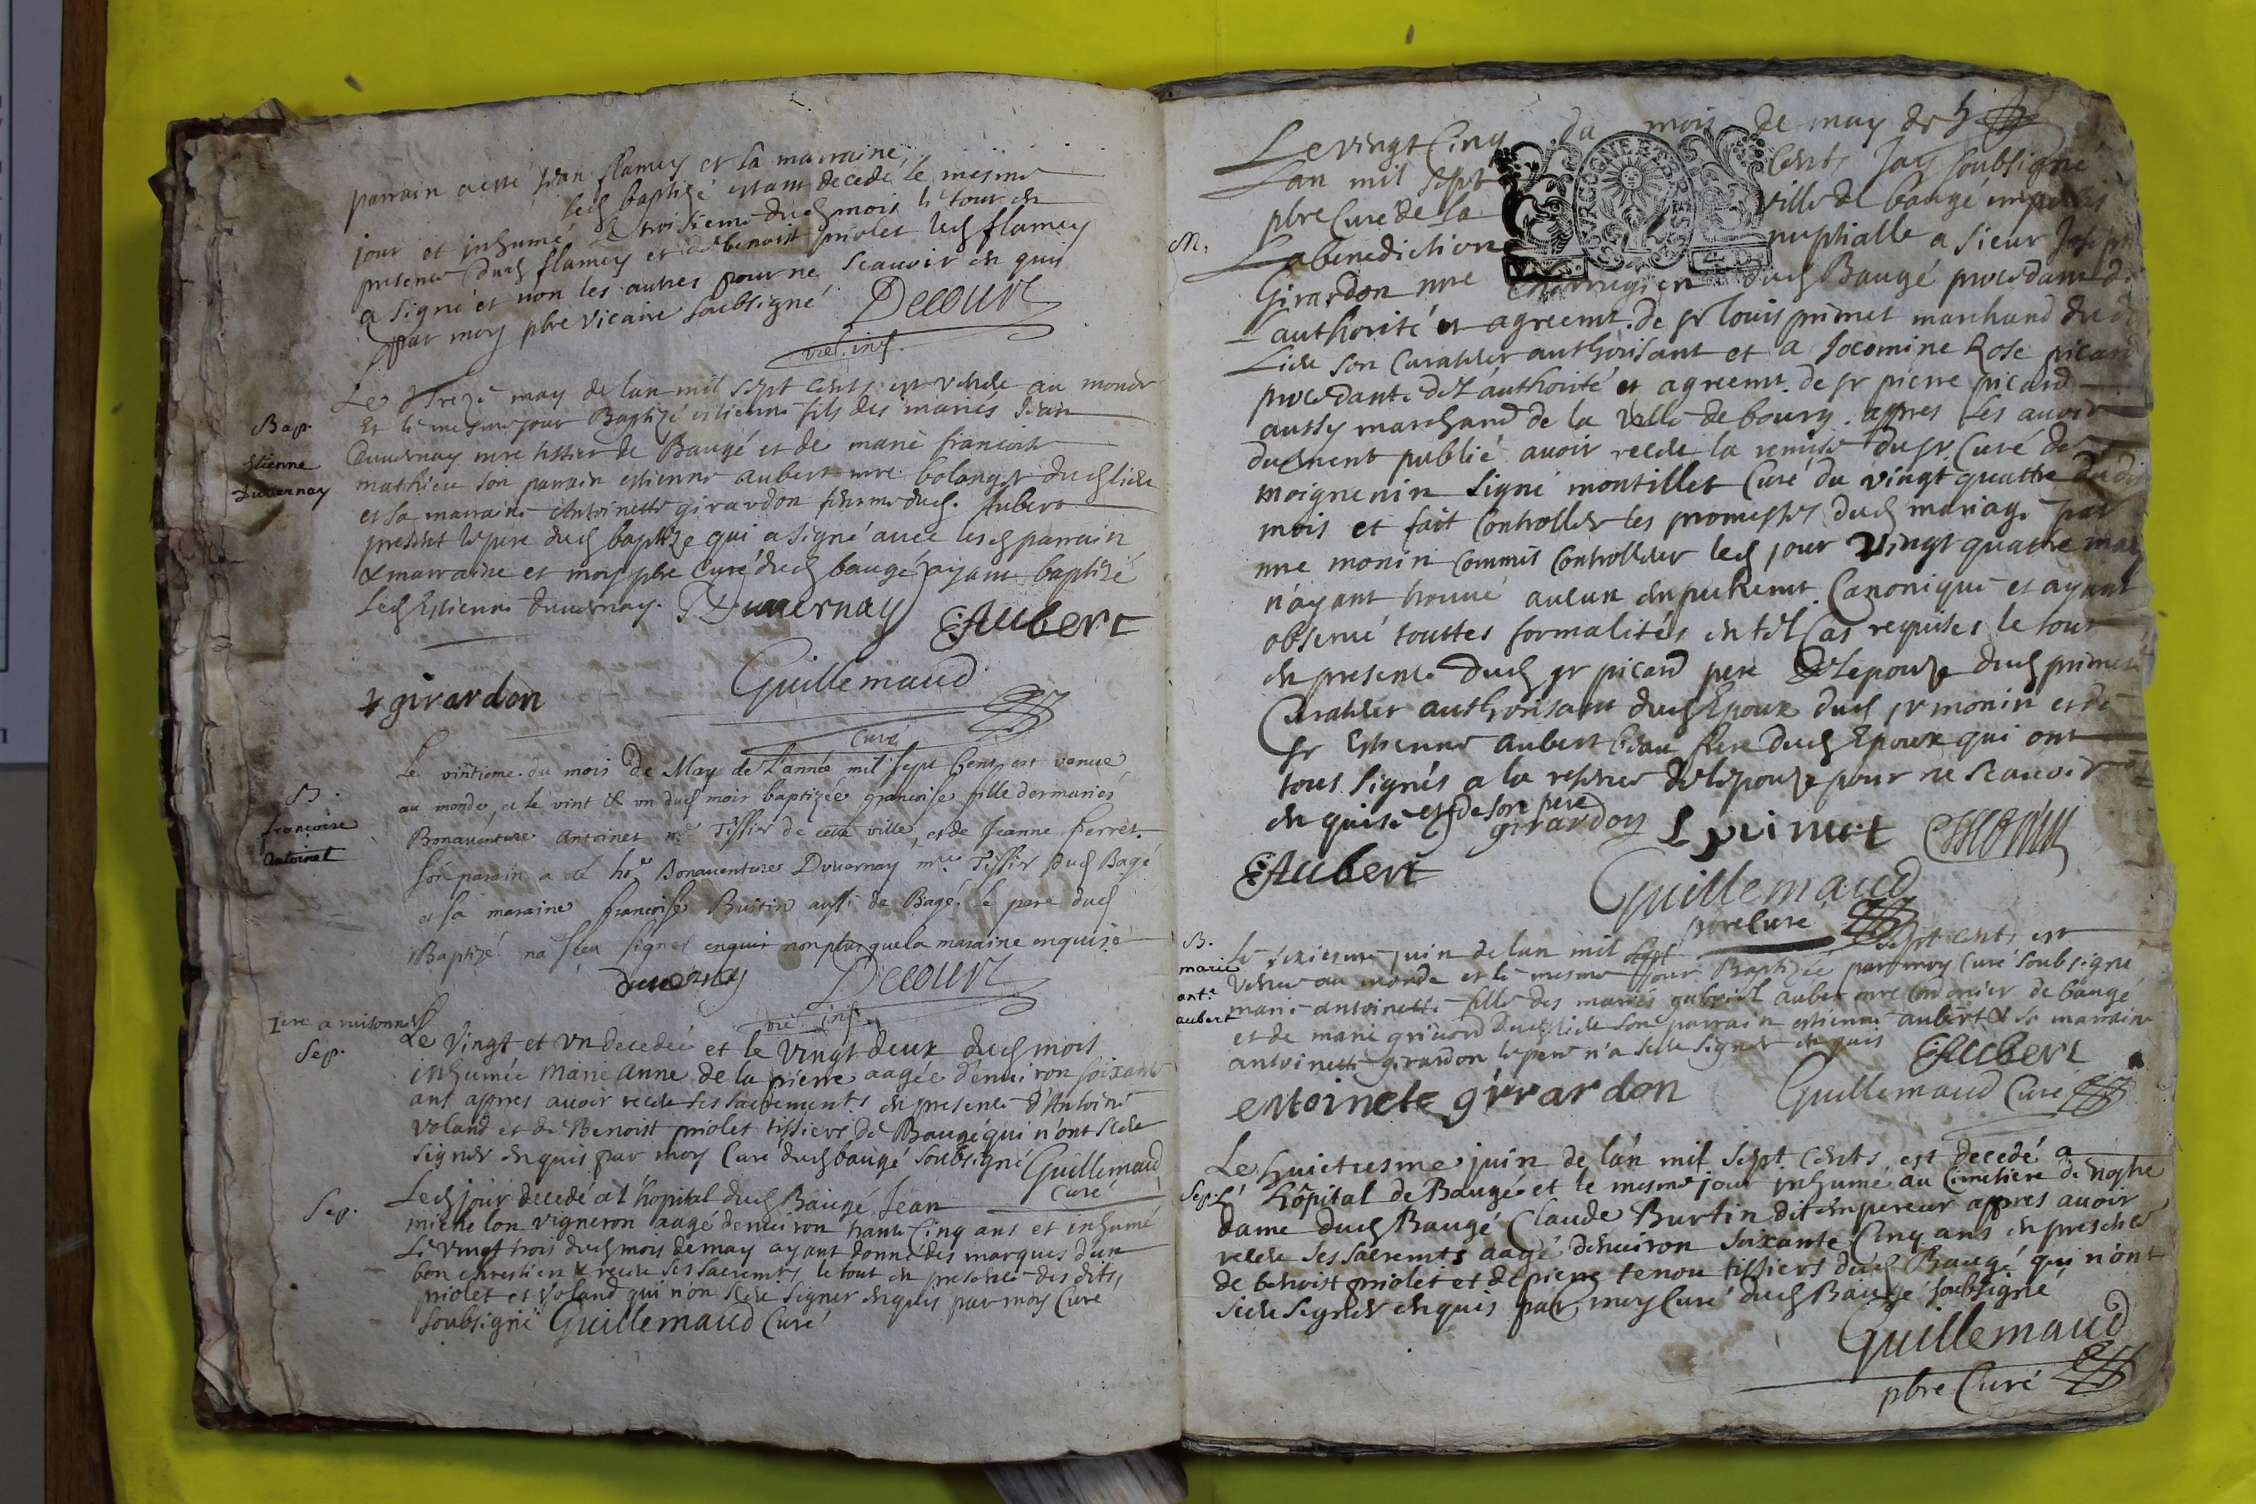 parrain a esté Jean flamey et sa marraine
led baptizé estant decedé le mesme
jour et inhumé le troisieme dud mois le tout en
presence dud flamey et de benoist piolet led flamey
a signé et non les autres pour ne scavoir en quis
par moy pbre vicaire soubsigné Decour
vic. inf.
Bap.
Estienne
Duvernay
Le treze may de lan mil sept cents est venu au monde
et le mesme jour Baptizé estienne fils des mariés Jean
Duvernay mre tissier de Baugé et de marie francoise
mathieu son parrain estienne aubert mre bolanger dud lieu
et sa marraine Antoinette girardon femme dud. Aubert
present le pere dud baptize qui a signé avec lesd parrain
& marraine et moy pbre Curé dud baugé ayant baptizé
led Estienne duvernay. J Duvernay E Aubert
girardon Guillemaud
Curé
B.
françoise
Antoinet
Le vintieme du mois de May de L'année mil sept Cent est venue
au monde, et le vint & un dud mois baptizée francoise fille des mariés
Bonaventure Antoinet me Tissier de cette ville, et de Jeanne ferret.
son parain a eté ho. Bonaventure Duvernay mre Tissier dud Bagé
et sa maraine francoise Buitin aussi de Bagé. le pere dud
Baptizé na sceu signer enquis non plus que la maraine enquise
duvernay Decour
vic. inf.
Sep.
Le vingt et un decedée et le vingt deux dud mois
inhumée marie anne de la pierre aagée d'environ soixante
ans appres avoir receu ses sacrements en presence d'Antoine
voland et de Benoist piolet tissiers de Baugé qui n'ont sceu
signer enquis par moy Curé dud baugé soubsigné Guillemaud
Curé
Sep.
Led jour decedé a l'hopital dud Baugé Jean
michelon vigneron aagé denviron trante Cinq ans et inhumé
Le vingt trois dud mois de may ayant donné des marques dun
bon chrestien & receu ses sacremts le tout en presence des dits
piolet et voland qui n'on sceu signer enquis par moy Curé
soubsigné Guillemaud Curé
M.
Le vingt Cinq du mois de may de
Lan mil sept Cents Jay soubsigné
pbre Curé de la ville de baugé
La benediction nuptialle a sieur Joseph
Girardon mre Chirurgien dud Baugé procedant de
L'authorité et agreemt. de sr louis primet marchand dud
Lieu son Curateur authorisant et a Jacomine Rose picard
procedante de l'authorité et agreemt. de sr pierre picard
aussy marchand de la ville de bourg. appres les avoir
duement publié avoir receu la remise du sr. Curé de
moignenin signé montillet Curé du vingt quattre dudit
mois et fait Controller les promesses dud mariage par
mre monin Commis Controlleur led jour vingt quatre may
n'ayant trouvé aucun enpechemt. Canonique et ayant
observé touttes formalités en tel Cas requises le tout
en presence dud sr picard pere de lepouse dud primet
Curateur authorisant dud Epoux dud sr monin et de
sr Estienne aubert beau frere dud Epoux qui ont
tous signés a la reserve de lepouse pour ne scavoir
enquise et de son pere girardon L primet Monin
E Aubert Guillemaud
pbre Curé
B.
marie
ant.e
aubert
Le juin de lan mil sept cents est
venue au monde et le mesme jour Baptizée par moy Curé soubsigné
marie antoinette fille des mariés gabriel aubert mre Cordonier de baugé
et de marie dud lieu son parrain estienne aubert & sa marraine
antoinette girardon le pere n'a sceu signer enquis E Aubert
antoinete girardon Guillemaud Curé
Sep.
Le huictiesme juin de lan mil sept cents est decedé a
L' hôpital de Baugé et le mesme jour inhumé au Cimetiere de nostre
dame dud Baugé Claude Burtin dit empereur appres avoir
receu ses sacremts aagé denviron soixante Cinq ans en presence
de benoist piolet et de pierre tenou tissiers dud Baugé qui n'ont
sceu signer enquis par moy Curé dud Baugé soubsigné
Guillemaud
pbre Curé